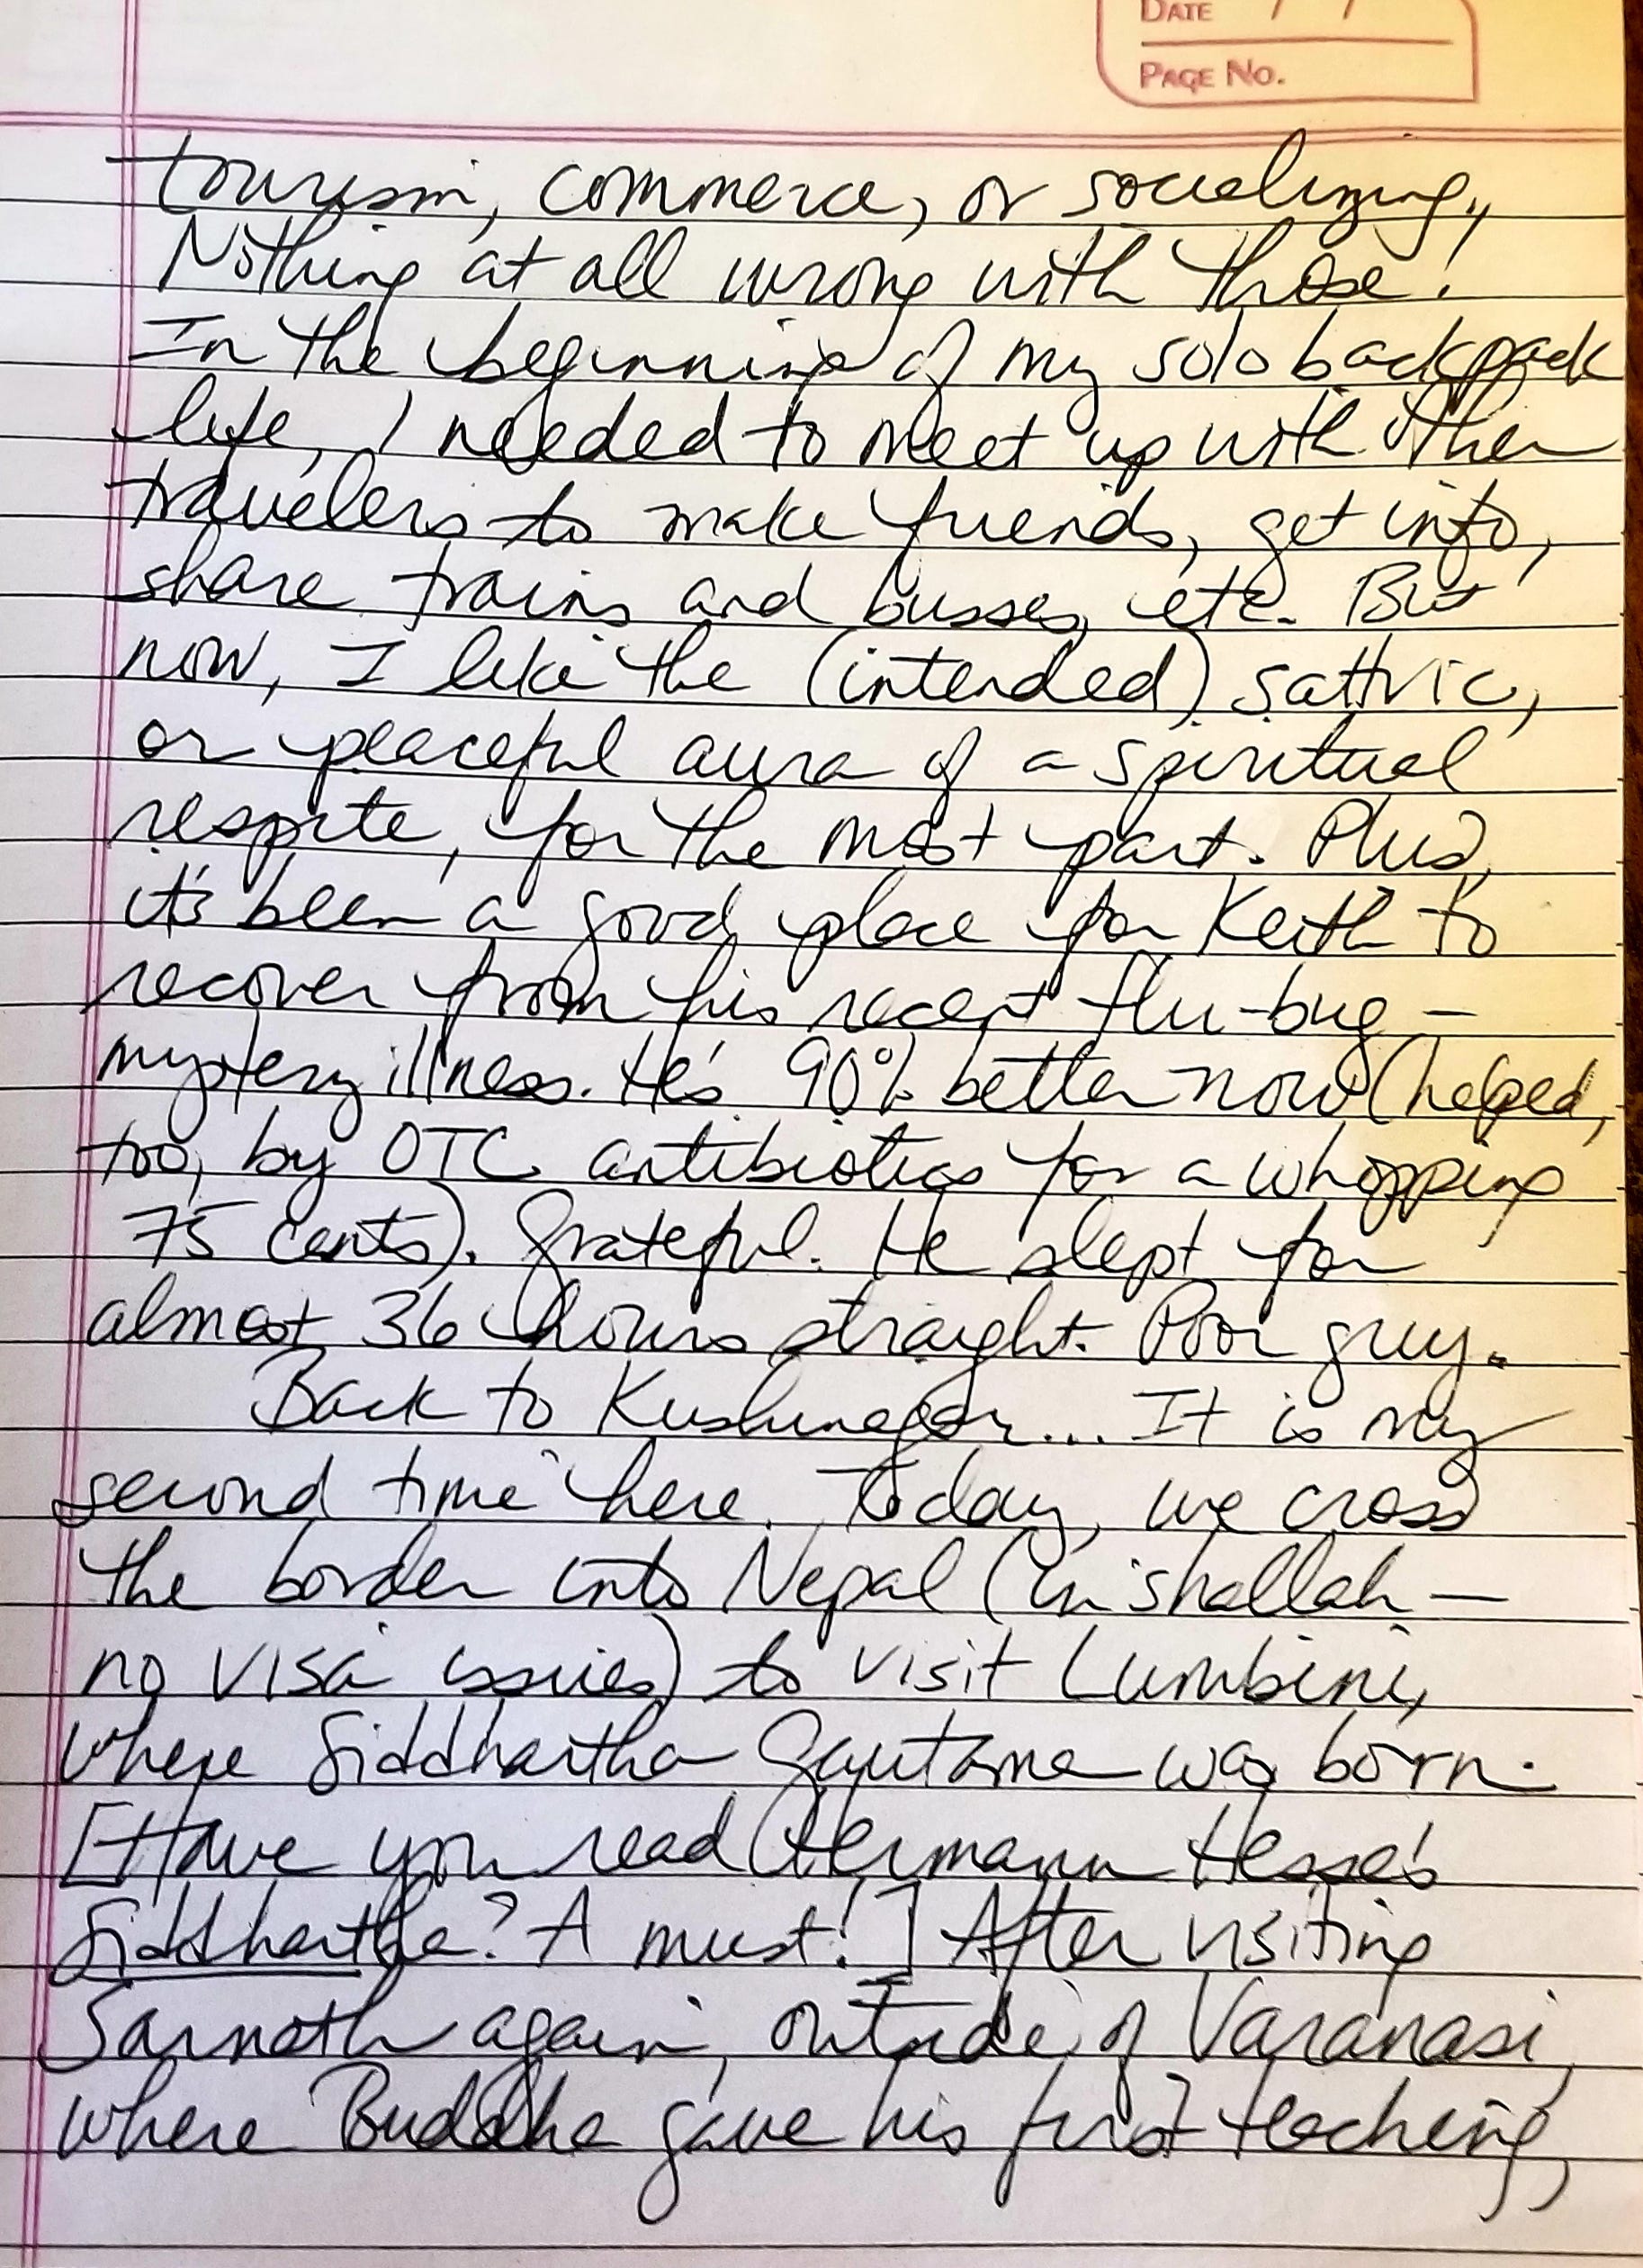 DATE / /
PAGE NO.
tourism, commerce, or socializing,
Nothing at all wrong with those!
In the beginning of my solo backpack
life, I needed to meet up with other
travelers to make friends, get info,
share trains and busses, etc. But
now, I like the (intended) sattvic,
or peaceful aura of a spiritual
respite, for the most part. Plus,
it's been a good place for Keith to
recover from his recent flu-bug-
mystery illness. He's 90% better now (helped,
too, by OTC antibiotics for a whopping
75 cents). Grateful. He slept for
almost 36 hours straight. Poor guy.
Back to Kushinagar... It is my
second time here. Today, we cross
the border into Nepal (in'shallah -
no visa issues) to visit Lumbini,
where Siddhartha Gautama was born.
[Have you read Hermann Hesse's
Siddhartha? A must!] After visiting
Sarnath again, outside of Varanasi,
where Buddha gave his first teaching,